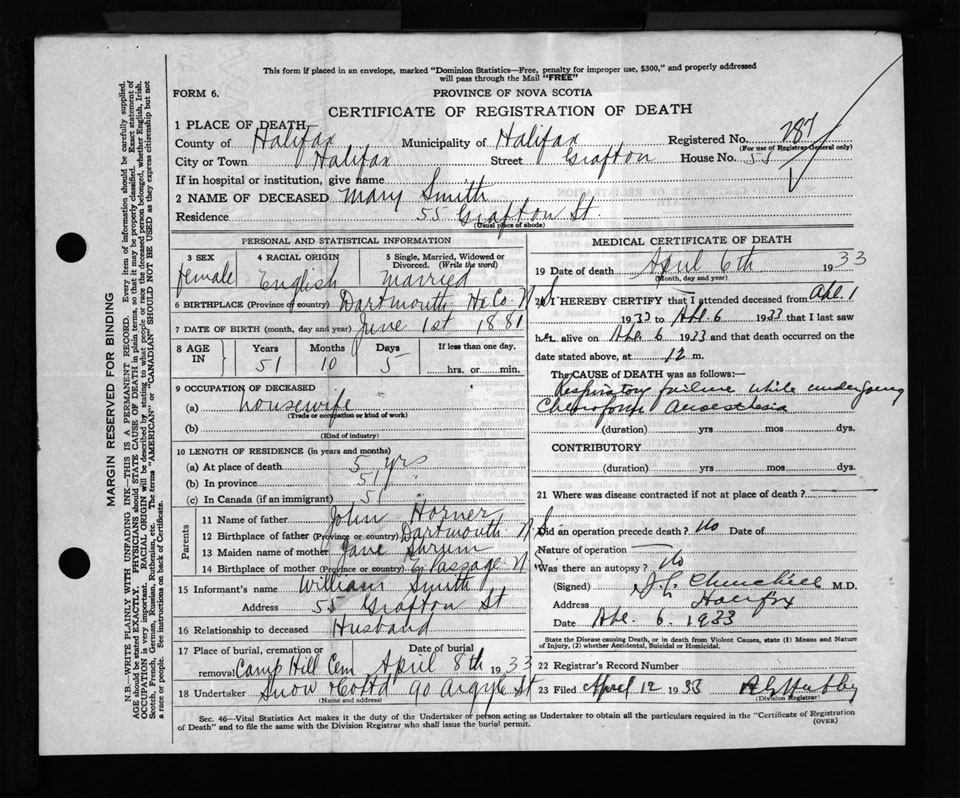 This form if placed in an envelope, marked "Dominion Statistics—Free, penalty for improper use, $300," and properly addressed
will pass through the Mail "FREE"
FORM 6.
PROVINCE OF NOVA SCOTIA
CERTIFICATE OF REGISTRATION OF DEATH
1 PLACE OF DEATH
County of Halifax Municipality of Halifax Registered No. 787
(For use of Registrar General only)
City or Town Halifax Street Grafton House No. 55
If in hospital or institution, give name
2 NAME OF DECEASED Mary Smith
Residence 55 Grafton St.
(Usual place of abode)
PERSONAL AND STATISTICAL INFORMATION
3 SEX 4 RACIAL ORIGIN 5 Single, Married, Widowed or
Divorced. (Write the word)
female English Married
6 BIRTHPLACE (Province or country) Dartmouth Hx Co N S
7 DATE OF BIRTH (month, day and year) June 1st 1881
8 AGE IN Years Months Days If less than one day,
51 10 5 hrs. or min.
9 OCCUPATION OF DECEASED
(a) housewife
(Trade or occupation or kind of work)
(b)
(Kind of industry)
10 LENGTH OF RESIDENCE (in years and months)
(a) At place of death 5 yrs
(b) In province 51 "
(c) In Canada (if an immigrant) 51 "
Parents
11 Name of father John Horner
12 Birthplace of father (Province or country) Dartmouth N S
13 Maiden name of mother Jane
14 Birthplace of mother (Province or country) Passage N
15 Informant's name William Smith
Address 55 Grafton St
16 Relationship to deceased Husband
17 Place of burial, cremation or Date of burial
removal Camp Hill Cem April 8th 1933
18 Undertaker Snow Co Ltd 90 Argyle St
(Name and address)
MEDICAL CERTIFICATE OF DEATH
19 Date of death April 6th 1933
(Month, day and year)
20 I HEREBY CERTIFY that I attended deceased from Apl. 1
1933 to Apl. 6 1933 that I last saw
her alive on Apl. 6 1933 and that death occurred on the
date stated above, at 12 m.
The CAUSE of DEATH was as follows:—
Respiratory failure while undergoing
Chloroform Anaesthesia
(duration) yrs mos dys.
CONTRIBUTORY
(duration) yrs mos dys.
21 Where was disease contracted if not at place of death?
Did an operation precede death? No Date of
Nature of operation
Was there an autopsy? No
(Signed) Churchill M.D.
Address Halifax
Date Apl. 6. 1933
State the Disease causing Death, or in death from Violent Causes, state (1) Means and Nature
of Injury, (2) whether Accidental, Suicidal or Homicidal.
22 Registrar's Record Number
23 Filed April 12 1933
(Division Registrar)
Sec. 46—Vital Statistics Act makes it the duty of the Undertaker or person acting as Undertaker to obtain all the particulars required in the "Certificate of Registration
of Death" and to file the same with the Division Registrar who shall issue the burial permit. (OVER)
MARGIN RESERVED FOR BINDING
N.B.—WRITE PLAINLY WITH UNFADING INK—THIS IS A PERMANENT RECORD. Every item of information should be carefully supplied.
AGE should be stated EXACTLY. PHYSICIANS should STATE CAUSE OF DEATH in plain terms, so that it may be properly classified. Exact statement of
OCCUPATION is very important. RACIAL ORIGIN will be described by stating to what people or race the deceased person belonged, whether English, Irish,
Scotch, French, German, Russian, Ruthenian, etc. The terms "AMERICAN" or "CANADIAN" SHOULD NOT BE USED as they express citizenship but not
a race or people. See instructions on back of Certificate.